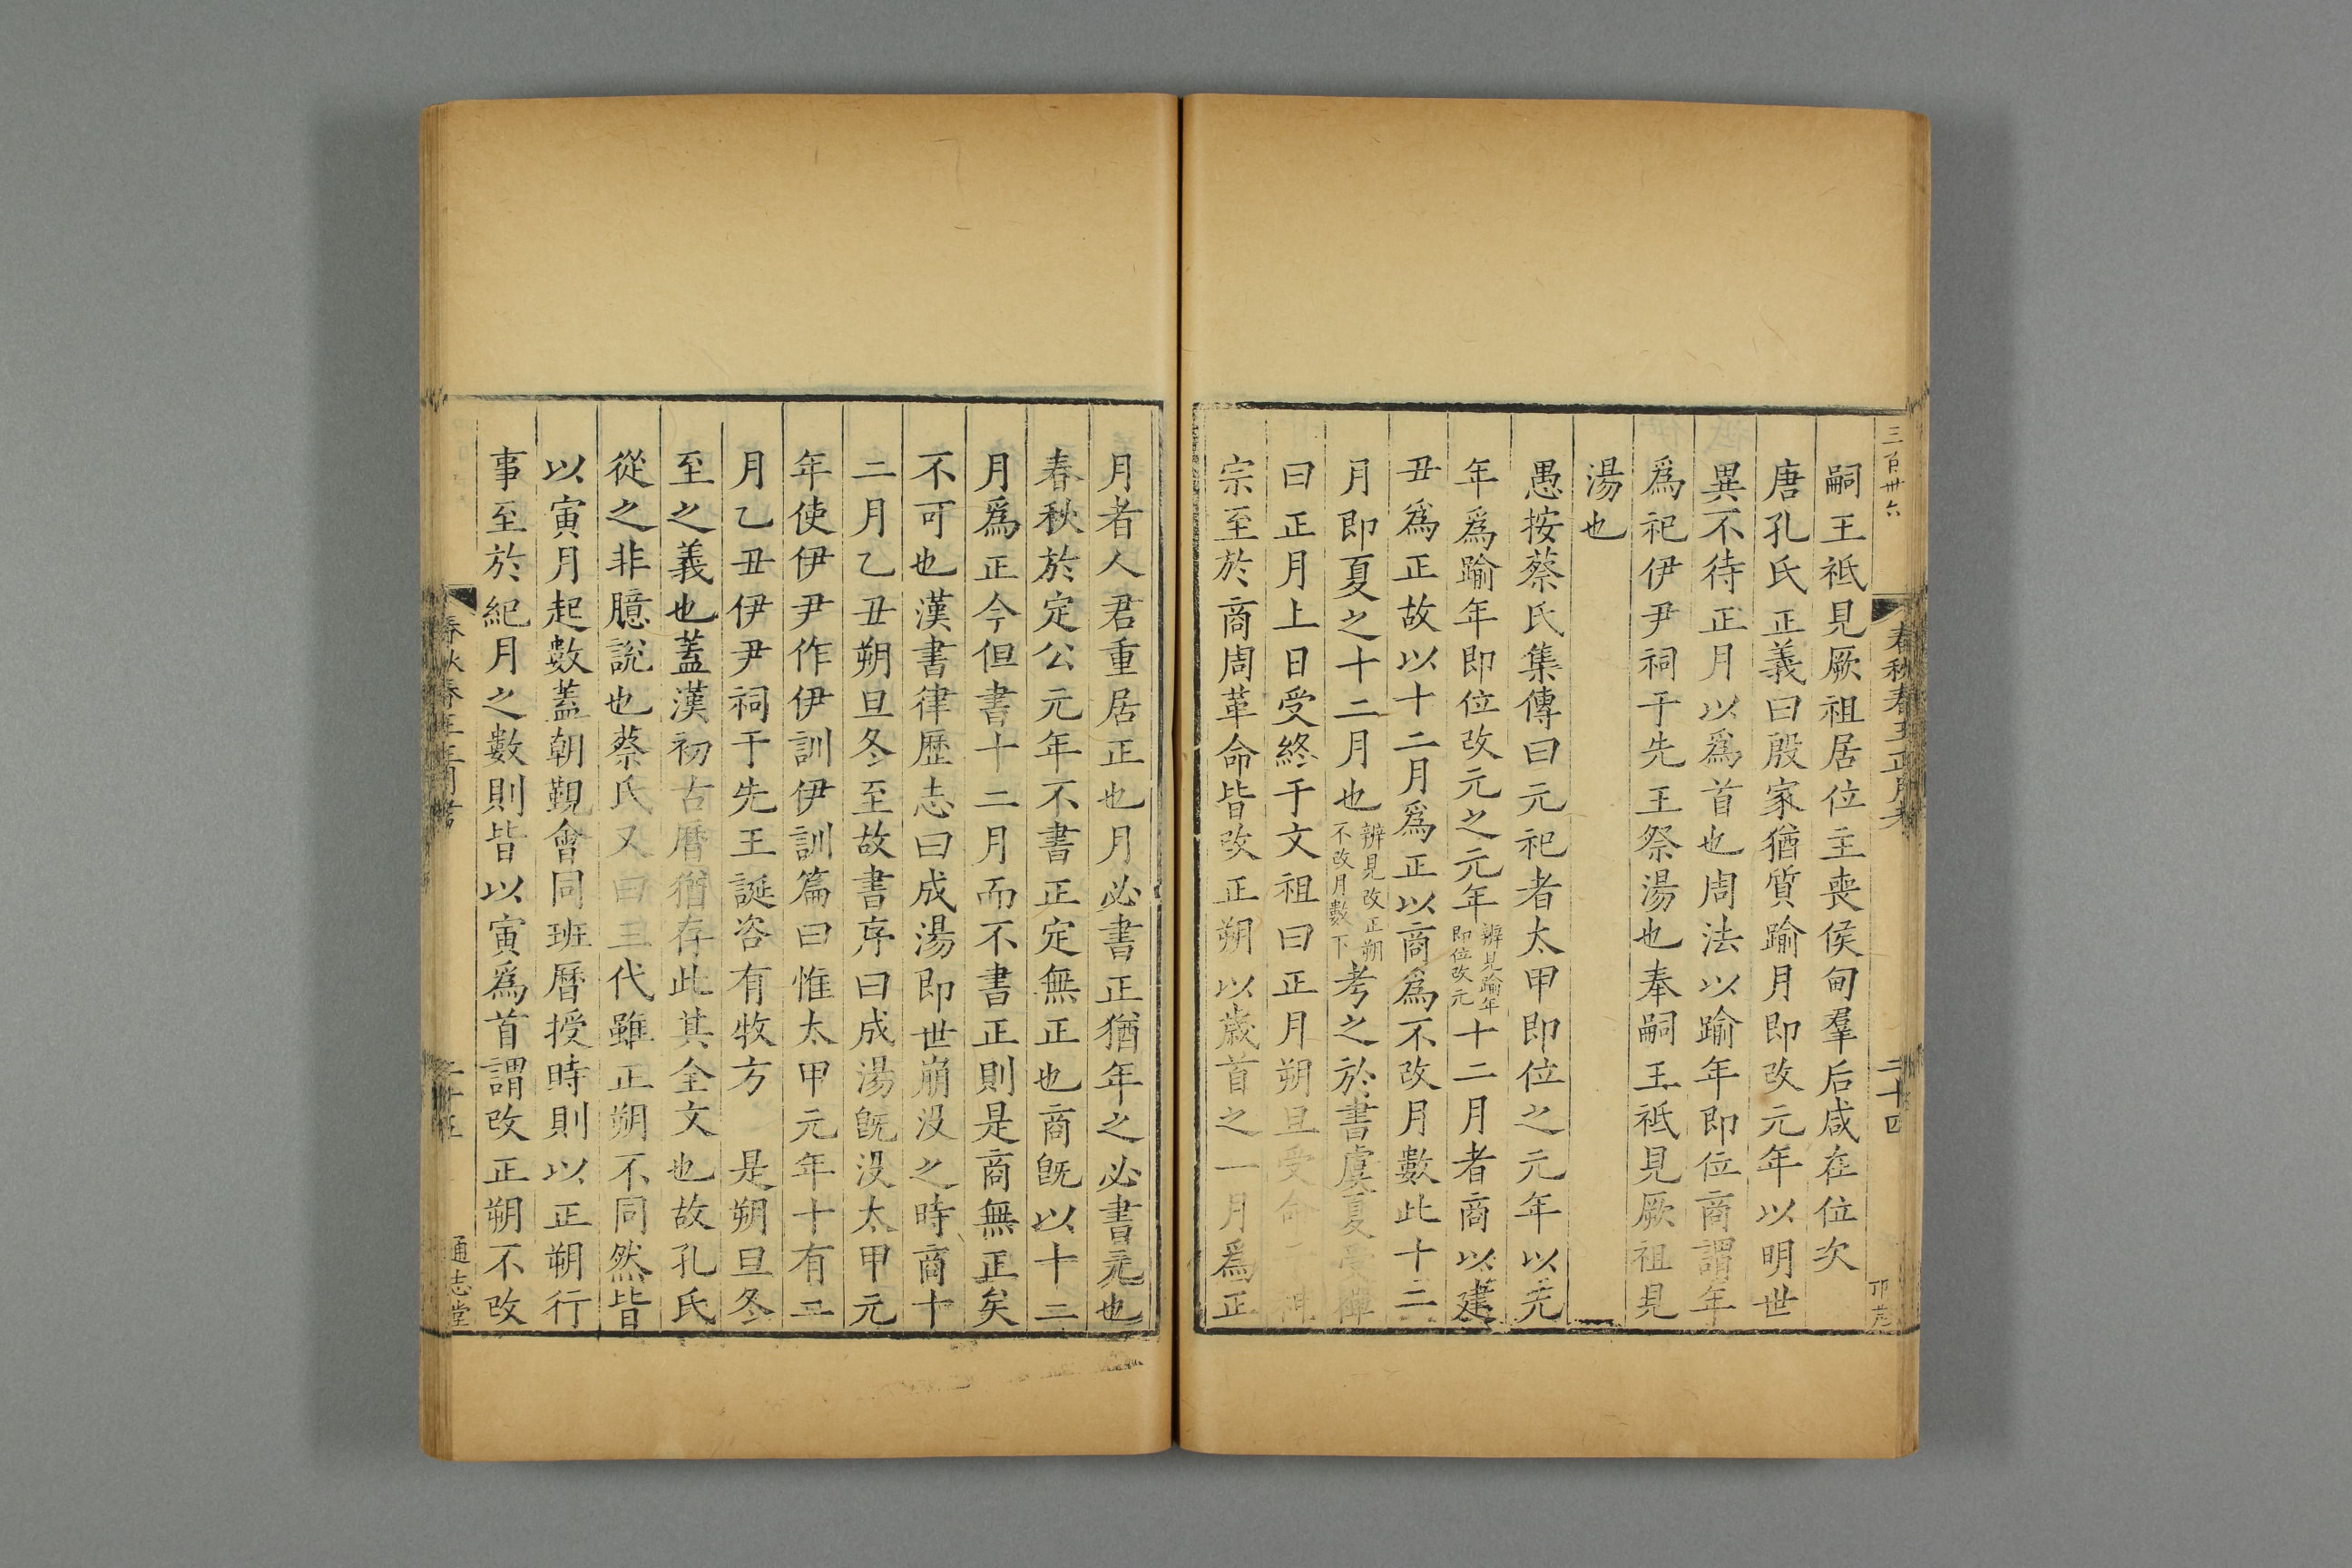 三百卅六
春秋春王正月考
二十四
嗣王祗見厥祖居位主喪侯甸羣后咸在位次
唐孔氏正義曰殷家猶質踰月即改元年以明世
異不待正月以爲首也周法以踰年即位商謂年
爲祀伊尹祠于先王祭湯也奉嗣王祗見厥祖見
湯也
愚按蔡氏集傳曰元祀者太甲即位之元年以元
年爲踰年即位改元之元年辨見踰年即位改元十二月者商以建
丑爲正故以十二月爲正以商爲不改月數此十二
月即夏之十二月也辨見改正朔不改月數下考之於書虞夏受禪
曰正月上日受終于文祖曰正月朔旦受命于神
宗至於商周革命皆改正朔以歲首之一月爲正
月者人君重居正也月必書正猶年之必書元也
春秋於定公元年不書正定無正也商旣以十二
月爲正今但書十二月而不書正則是商無正矣
不可也漢書律歷志曰成湯即世崩没之時商十
二月乙丑朔旦冬至故書序曰成湯旣没太甲元
年使伊尹作伊訓伊訓篇曰惟太甲元年十有二
月乙丑伊尹祠于先王誕咨有牧方　是朔旦冬
至之義也蓋漢初古曆猶存此其全文也故孔氏
從之非臆說也蔡氏又曰三代雖正朔不同然皆
以寅月起數蓋朝覲會同班曆授時則以正朔行
事至於紀月之數則皆以寅爲首謂改正朔不改
春秋春王正月考
二十五
通志堂